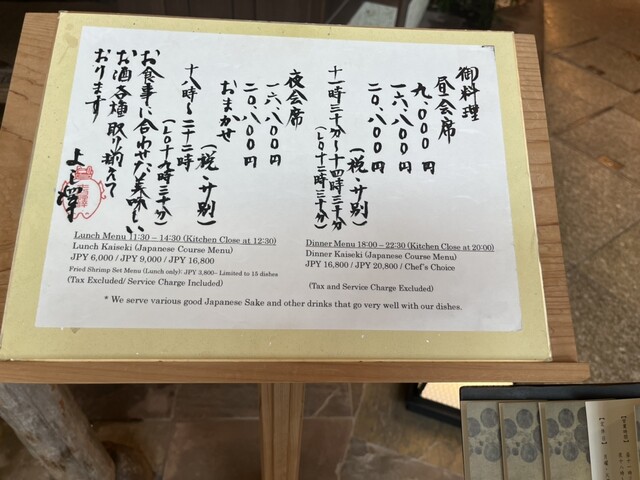 御料理
昼会席
九、000円
一六、八00円
二0、八00円
(税・サ別)
十一時三十分〜十四時三十分
(L.O十二時三十分)
夜会席
一六、八00円
二0、八00円
おまかせ
(税・サ別)
十八時〜二十二時
(L.O十九時三十分)
お食事に合わせた美味しい
お酒各種取り揃えて
おります
よし澤
Lunch Menu 11:30 – 14:30 (Kitchen Close at 12:30)
Lunch Kaiseki (Japanese Course Menu)
JPY 6,000 / JPY 9,000 / JPY 16,800
Fried Shrimp Set Menu (Lunch only): JPY 3,800- Limited to 15 dishes
(Tax Excluded/ Service Charge Included)
Dinner Menu 18:00 – 22:30 (Kitchen Close at 20:00)
Dinner Kaiseki (Japanese Course Menu)
JPY 16,800 / JPY 20,800 / Chef's Choice
(Tax and Service Charge Excluded)
* We serve various good Japanese Sake and other drinks that go very well with our dishes.